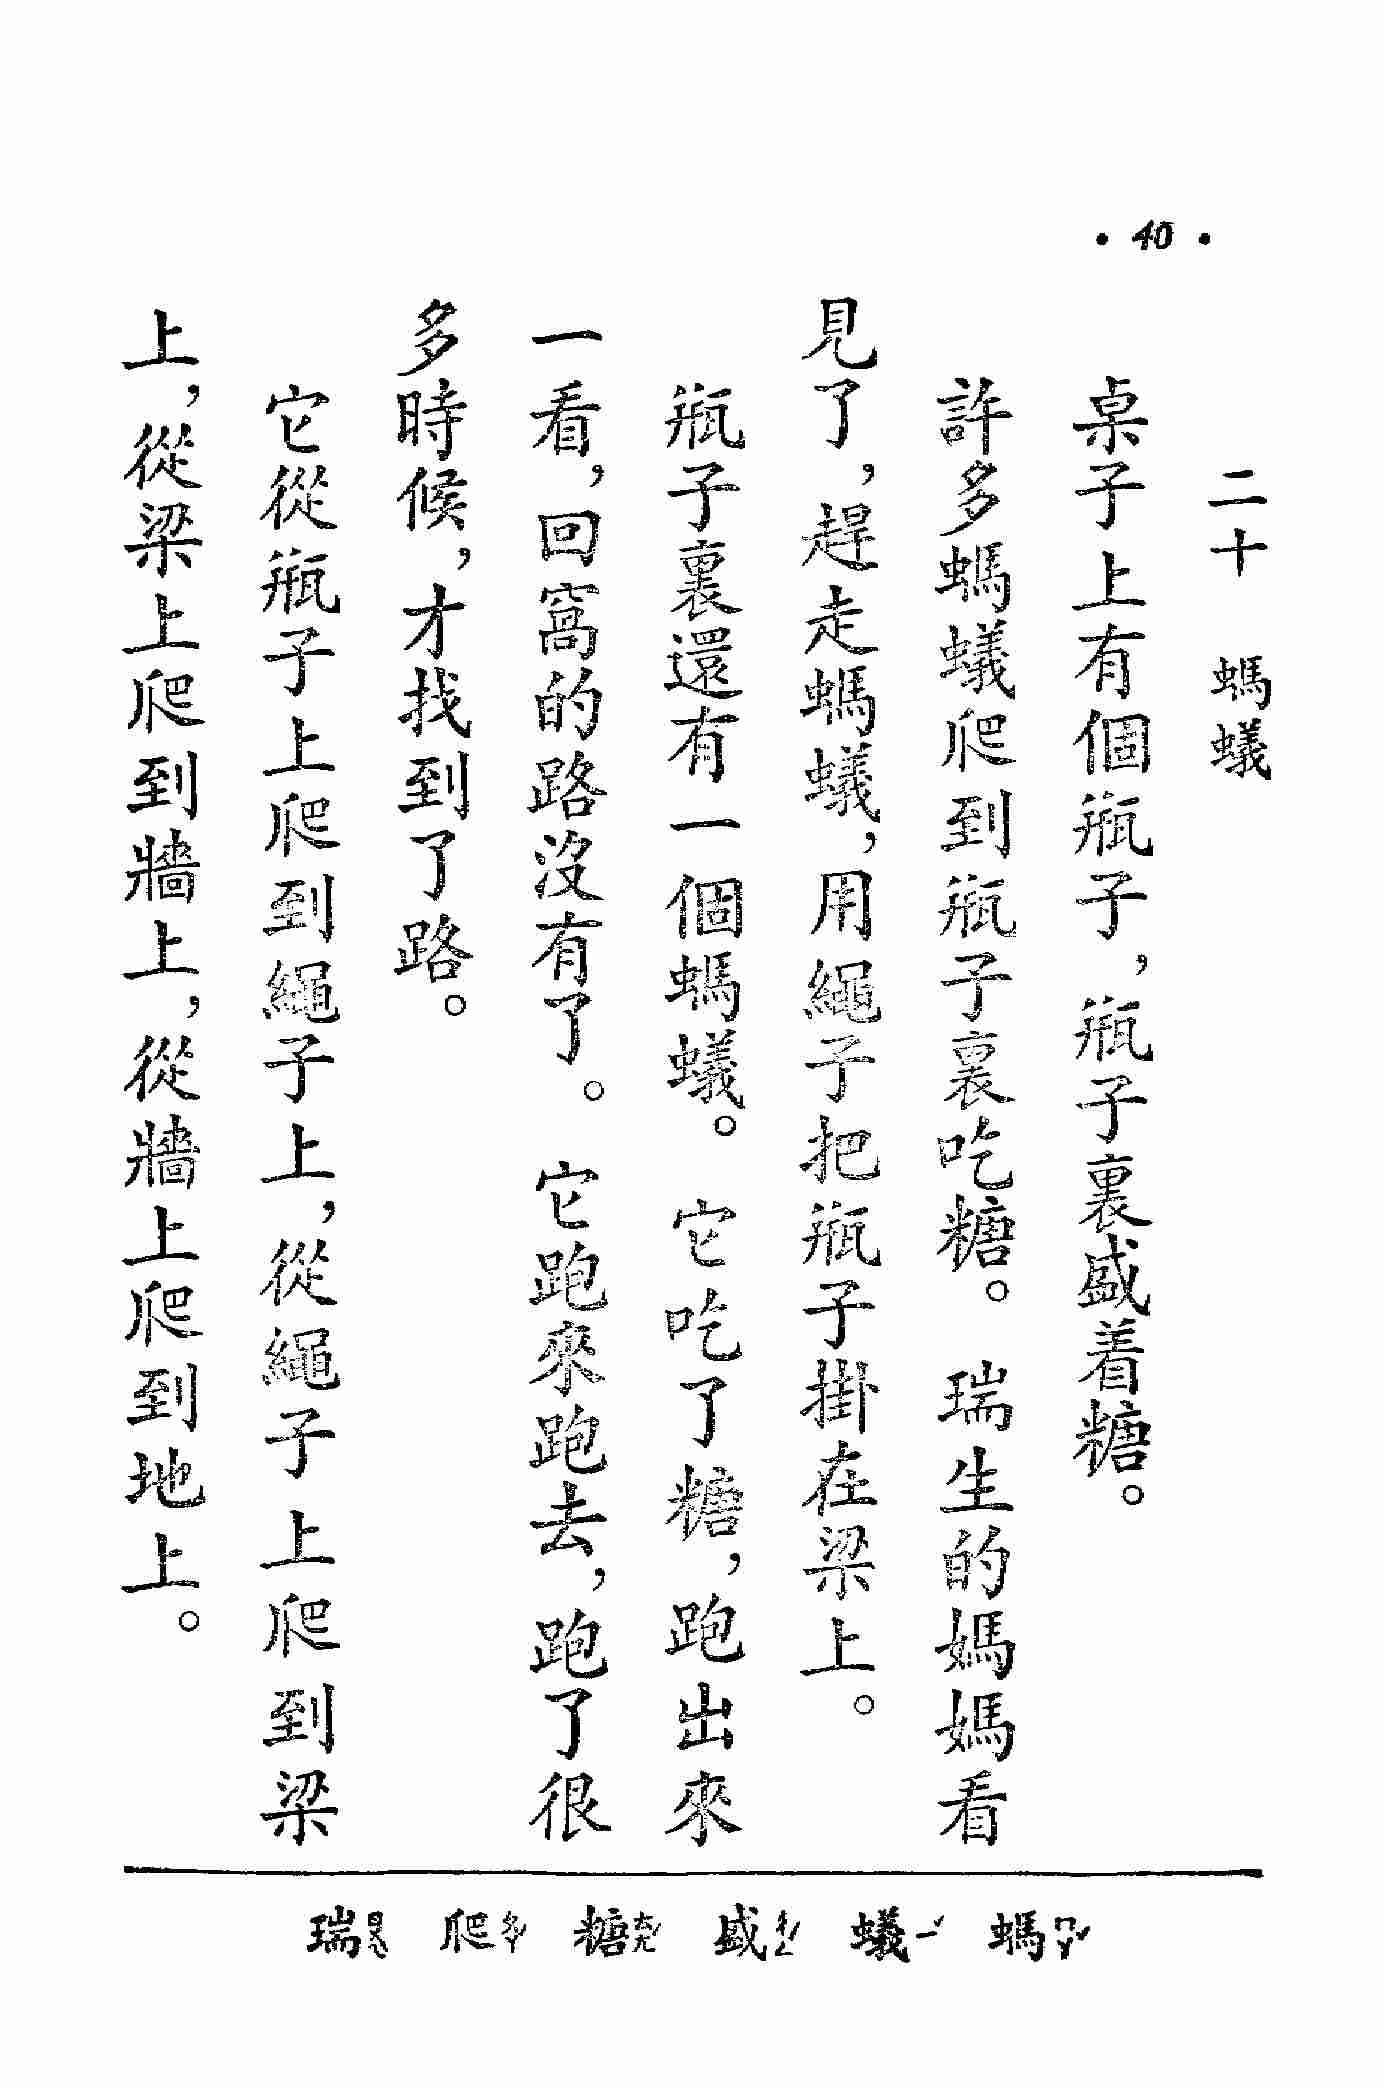 • 40 •
二十 螞蟻
桌子上有個瓶子，瓶子裏盛着糖。
許多螞蟻爬到瓶子裏吃糖。 瑞生的媽媽看
見了，趕走螞蟻，用繩子把瓶子掛在梁上。
瓶子裏還有一個螞蟻。 它吃了糖，跑出來
一看，回窩的路沒有了。 它跑來跑去，跑了很
多時候，才找到了路。
它從瓶子上爬到繩子上，從繩子上爬到梁
上，從梁上爬到牆上，從牆上爬到地上。
螞ㄇㄚˇ 蟻ㄧˇ 盛ㄔㄥˊ 糖ㄊㄤˊ 爬ㄆㄚˊ 瑞ㄖㄨㄟˋ